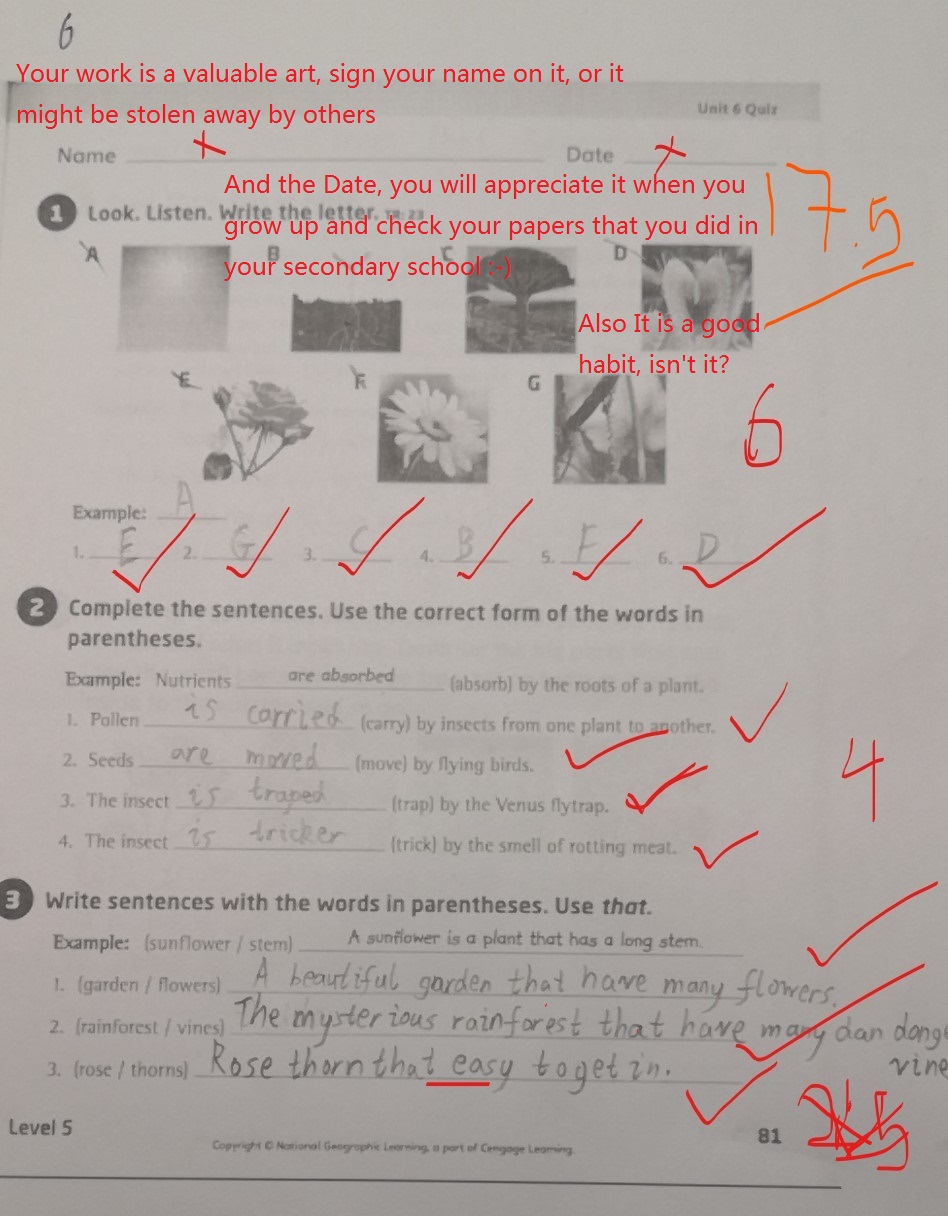 6
Your work is a valuable art, sign your name on it, or it
might be stolen away by others
Unit 6 Quiz
Name
Date
And the Date, you will appreciate it when you
grow up and check your papers that you did in
your secondary school :-)
17.5
1 Look. Listen. Write the letter. TR: 23
A B C D
Also It is a good
habit, isn't it?
E F G
6
Example: A
1. E 2. G 3. C 4. B 5. F 6. D
2 Complete the sentences. Use the correct form of the words in
parentheses.
Example: Nutrients are absorbed (absorb) by the roots of a plant.
1. Pollen is carried (carry) by insects from one plant to another.
2. Seeds are moved (move) by flying birds.
4
3. The insect is traped (trap) by the Venus flytrap.
4. The insect is tricker (trick) by the smell of rotting meat.
3 Write sentences with the words in parentheses. Use that.
Example: (sunflower / stem) A sunflower is a plant that has a long stem.
1. (garden / flowers) A beautiful garden that have many flowers.
2. (rainforest / vines) The mysterious rainforest that have many dan dange
vine
3. (rose / thorns) Rose thorn that easy to get in.
Level 5
81
Copyright © National Geographic Learning, a part of Cengage Learning